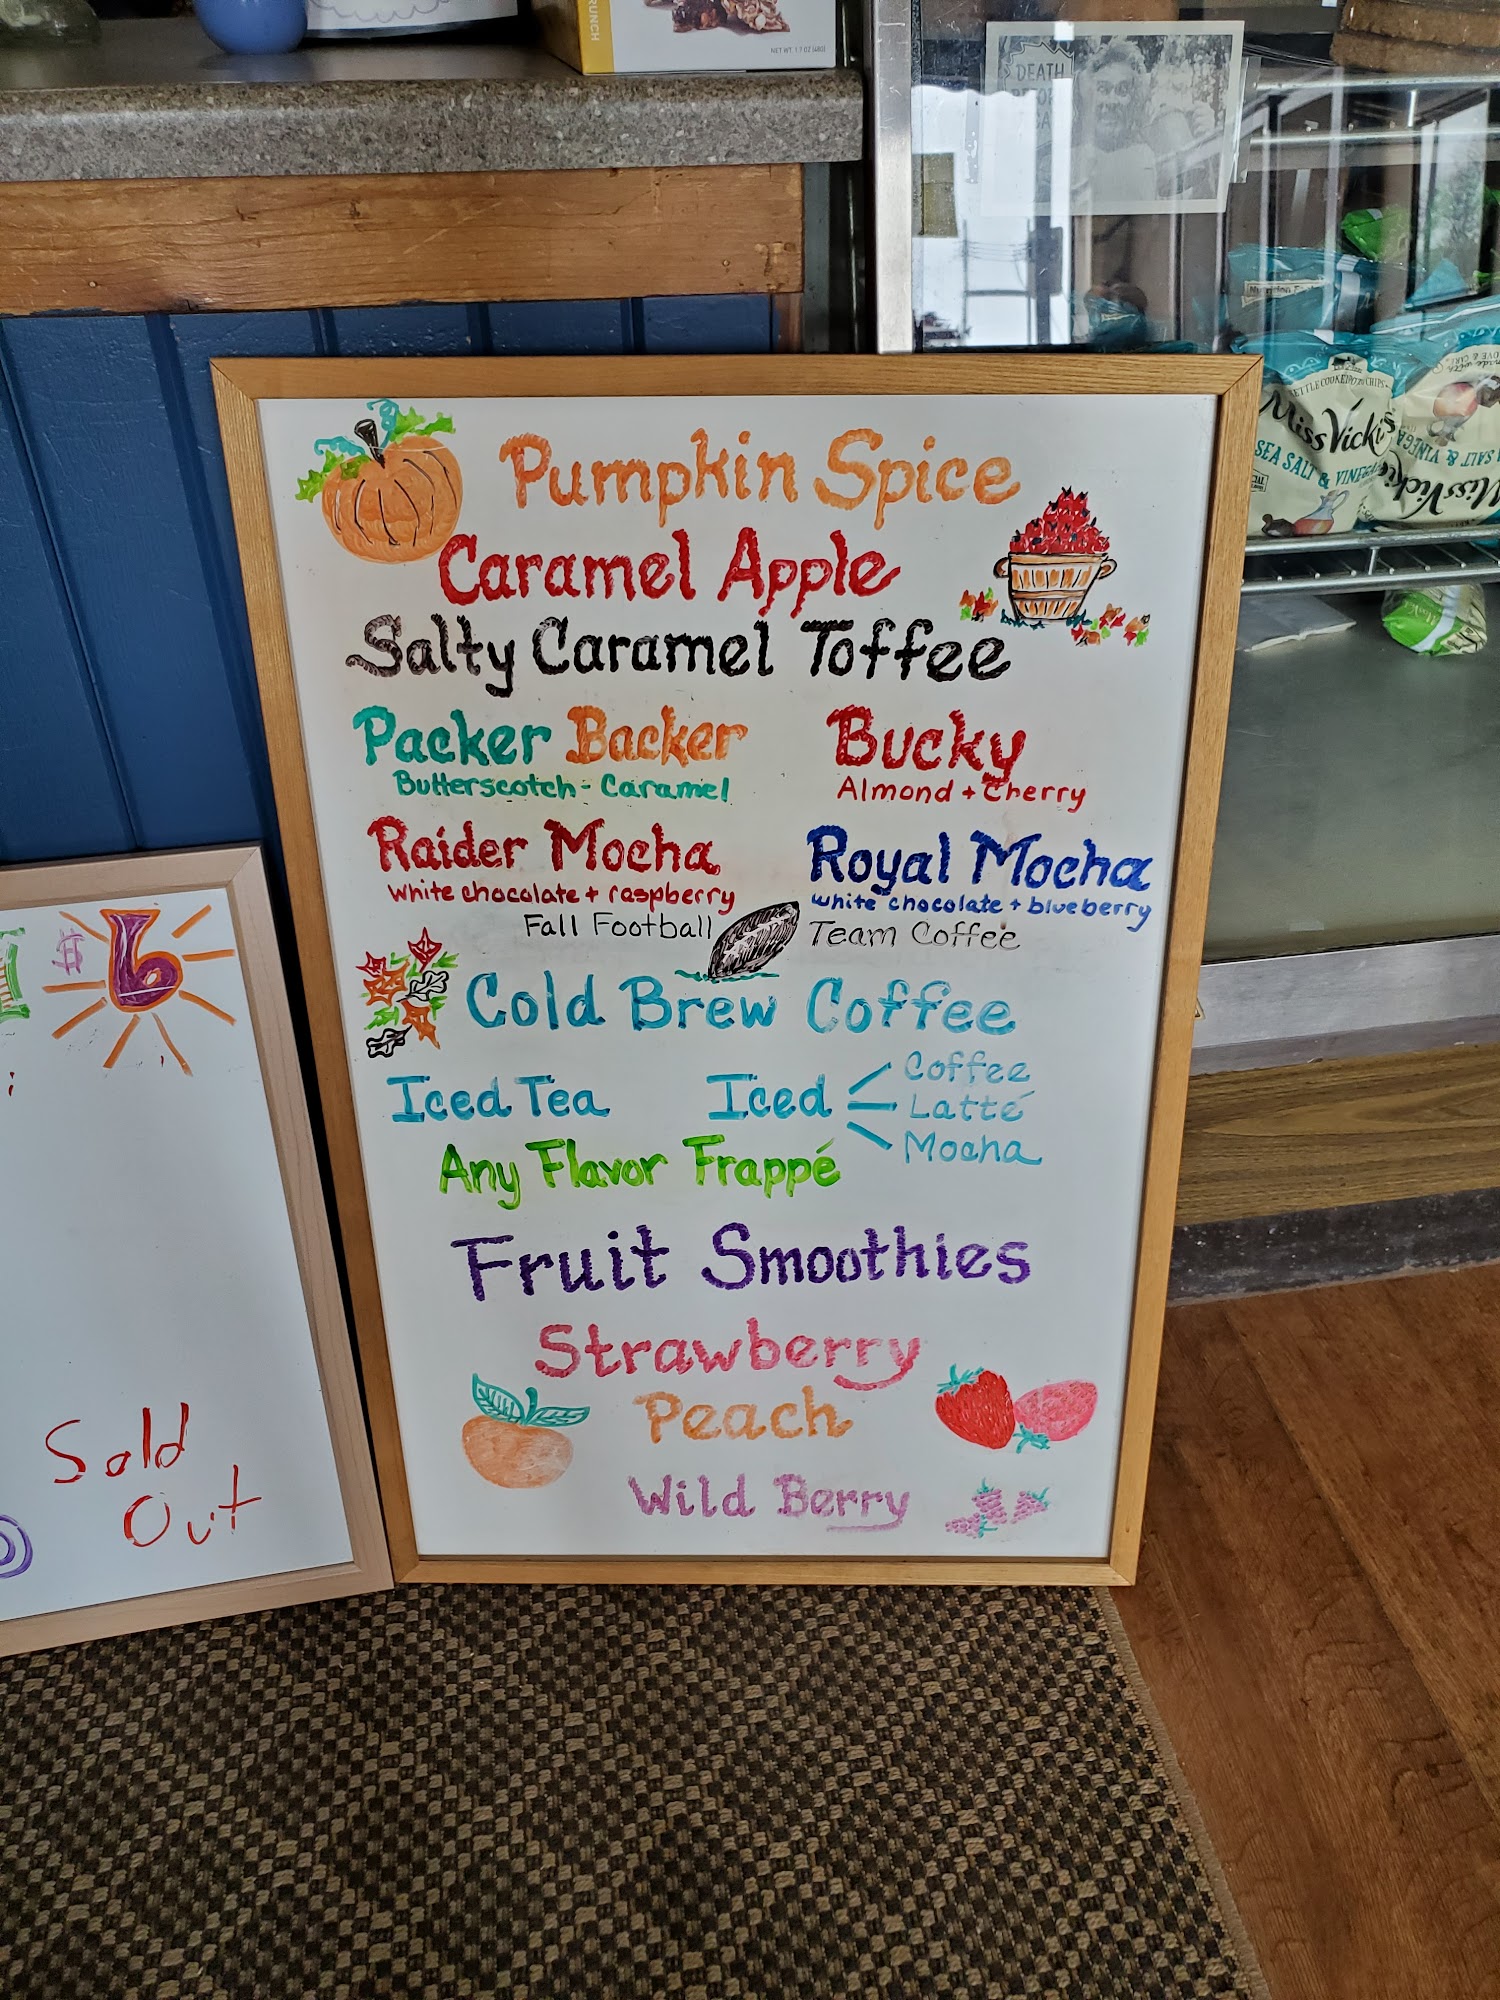 RUNCH
NET WT. 1.7 OZ (48G)
DEATH
Pumpkin Spice
Caramel Apple
Salty Caramel Toffee
Packer Backer
Butterscotch - Caramel
Bucky
Almond + Cherry
Raider Mocha
white chocolate + raspberry
Royal Mocha
white chocolate + blueberry
Fall Football Team Coffee
Cold Brew Coffee
Iced Tea
Iced
Coffee
Latté
Mocha
Any Flavor Frappé
Fruit Smoothies
Strawberry
Peach
Wild Berry
$6
Sold
Out
KETTLE COOKED POTATO CHIPS
Miss Vickie's
SEA SALT & VINEGAR
Miss Vickie's